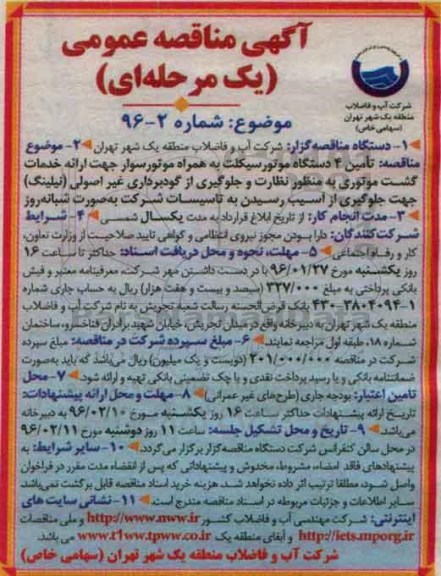 آگهی مناقصه عمومی
(یک مرحله‌ای)
موضوع: شماره ۲-۹۶
شرکت آب و فاضلاب
منطقه یک شهر تهران
(سهامی خاص)
۱- دستگاه مناقصه‌گزار: شرکت آب و فاضلاب منطقه یک شهر تهران ۲- موضوع
مناقصه: تأمین ۴ دستگاه موتورسیکلت به همراه موتورسوار جهت ارائه خدمات
گشت موتوری به منظور نظارت و جلوگیری از گودبرداری غیر اصولی (نیلینگ)
جهت جلوگیری از آسیب رسیدن به تاسیسات شرکت به‌صورت شبانه‌روز
۳- مدت انجام کار: از تاریخ ابلاغ قرارداد به مدت یکسال شمسی ۴- شرایط
شرکت‌کنندگان: دارا بودن مجوز نیروی انتظامی و گواهی تایید صلاحیت از وزارت تعاون،
کار و رفاه اجتماعی ۵- مهلت، نحوه و محل دریافت اسناد: حداکثر تا ساعت ۱۶
روز یکشنبه مورخ ۹۶/۰۱/۲۷ با در دست داشتن مهر شرکت، معرفینامه معتبر و فیش
بانکی پرداختی به مبلغ ۳۳۷/۰۰۰ (سیصد و بیست و هفت هزار) ریال به حساب جاری شماره
۴۳۰-۳۸۰۴۰۹۴-۱ بانک قرض‌الحسنه رسالت شعبه تجریش به نام شرکت آب و فاضلاب
منطقه یک شهر تهران به دبیرخانه واقع در میدان تجریش، خیابان شهید برادران فناخسرو، ساختمان
شماره ۱۸، طبقه اول مراجعه نمایند. ۶- مبلغ سپرده شرکت در مناقصه: مبلغ سپرده
شرکت در مناقصه ۲۰۱/۰۰۰/۰۰۰ (دویست و یک میلیون) ریال می‌باشد که باید به‌صورت
ضمانتنامه بانکی و یا رسید پرداخت نقدی و یا چک تضمینی بانکی تهیه و ارائه شود. ۷- محل
تامین اعتبار: بودجه جاری (طرح‌های غیر عمرانی) ۸- مهلت و محل ارائه پیشنهادات:
تاریخ ارائه پیشنهادات حداکثر ساعت ۱۶ روز یکشنبه مورخ ۹۶/۰۲/۱۰ به دبیرخانه
می‌باشد. ۹- تاریخ و محل تشکیل جلسه: ساعت ۱۱ روز دوشنبه مورخ ۹۶/۰۲/۱۱
در محل سالن کنفرانس شرکت دستگاه مناقصه‌گزار برگزار می‌گردد. ۱۰- سایر شرایط: به
پیشنهادهای فاقد امضاء، مشروط، مخدوش و پیشنهاداتی که پس از انقضاء مدت مقرر در فراخوان
واصل شود، مطلقا ترتیب اثر داده نخواهد شد. هزینه خرید اسناد مناقصه قابل برگشت نمی‌باشد
سایر اطلاعات و جزئیات مربوطه در اسناد مناقصه مندرج است. ۱۱- نشانی سایت های
اینترنتی: شرکت مهندسی آب و فاضلاب کشور http://www.nww.ir و ملی مناقصات
http://iets.mporg.ir و آبفای منطقه یک www.t1ww.tpww.co.ir می باشد.
شرکت آب و فاضلاب منطقه یک شهر تهران (سهامی خاص)